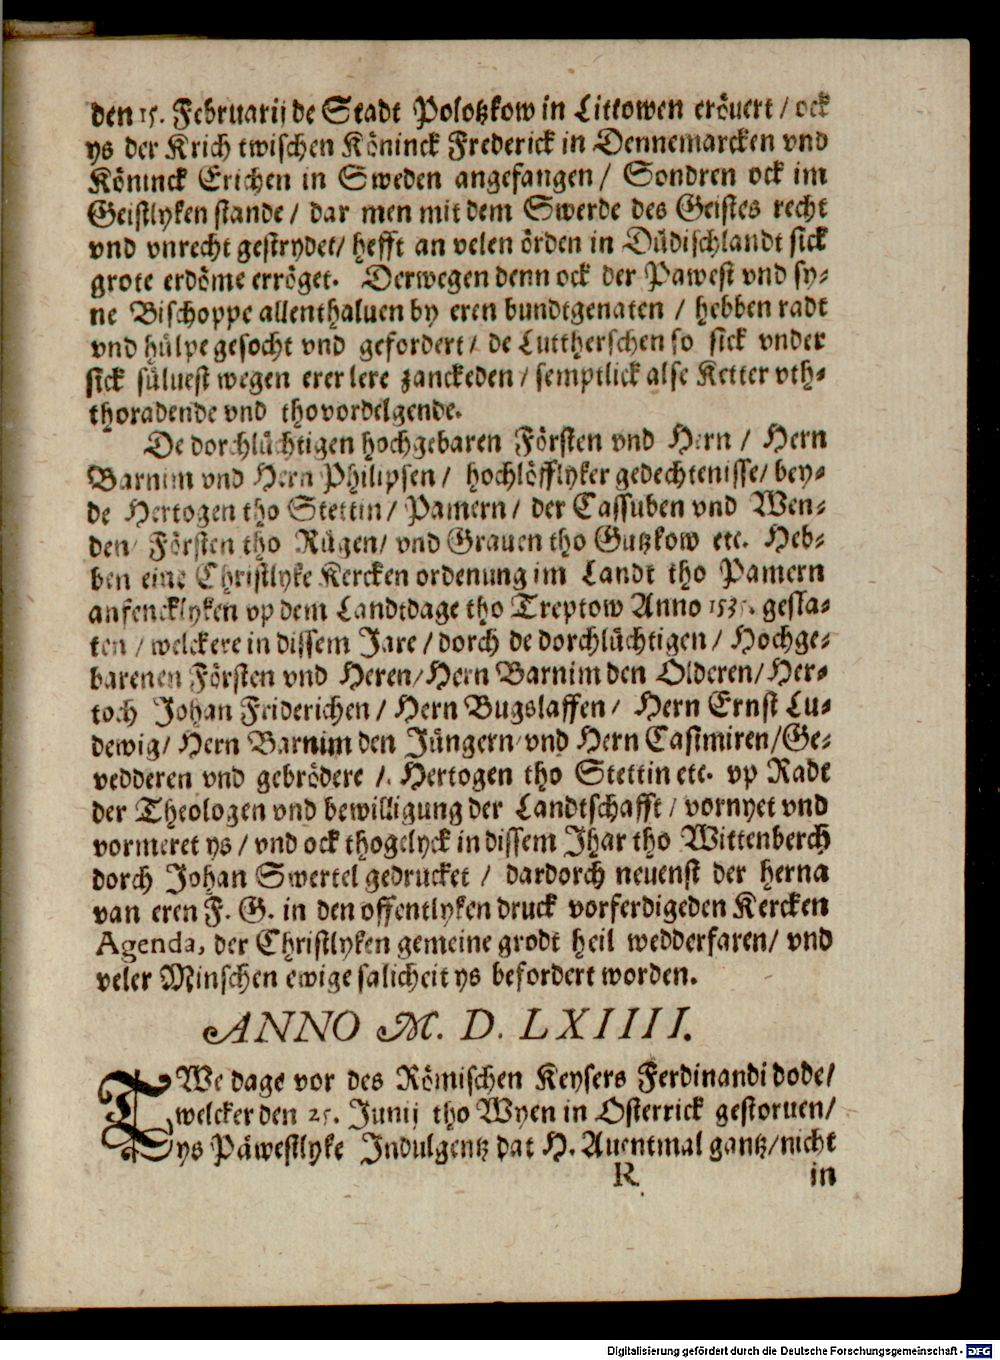 den 15. Februarij de Stadt Polotzkow in Littowen eröuert / ock
ys der Krich twischen Köninck Frederick in Dennemarcken vnd
Köninck Erichen in Sweden angefangen / Sondren ock im
Geistlyken stande / dar men mit dem Swerde des Geistes recht
vnd vnrecht gestrydet / hefft an velen örden in Düdischlandt sick
grote erdöme erröget. Derwegen denn ock der Pawest vnd sy-
ne Bischoppe allenthaluen by eren bundtgenaten / hebben radt
vnd hülpe gesocht vnd gefordert / de Luttherschen so sick vnder
sick süluest wegen erer lere zanckeden / semptlick alse Ketter vth-
thoradende vnd thovordelgende.
De dorchlüchtigen hochgebaren Försten vnd Hern / Hern
Barnim vnd Hern Philipsen / hochlöfflyker gedechtenisse / bey-
de Hertogen tho Stettin / Pamern / der Cassuben vnd Wen-
den / Försten tho Rügen / vnd Grauen tho Gutzkow etc. Heb-
ben eine Christlyke Kercken ordenung im Landt tho Pamern
anfencklyken vp dem Landtdage tho Treptow Anno 1535. gesla-
ten / welckere in dissem Jare / dorch de dorchlüchtigen / Hochge-
barenen Försten vnd Heren / Hern Barnim den Olderen / Her-
toch Johan Friderichen / Hern Bugslaffen / Hern Ernst Lu-
dewig / Hern Barnim den Jüngern vnd Hern Casimiren / Ge-
vedderen vnd gebrödere / Hertogen tho Stettin etc. vp Radt
der Theologen vnd bewilligung der Landtschafft / vornyet vnd
vormeret ys / vnd ock thogelyck in dissem Jhar tho Wittenberch
dorch Johan Swertel gedrucket / dardorch neuenst der herna
van eren F. G. in den offentlyken druck vorferdigeden Kercken
Agenda, der Christlyken gemeine grodt heil wedderfaren / vnd
veler Minschen ewige salicheit ys befordert worden.
ANNO M. D. LXIIII.
TWe dage vor des Römischen Keysers Ferdinandi dode /
welcker den 25. Junij tho Wyen in Osterrick gestoruen /
ys Päwestlyke Indulgentz dat H. Auentmal gantz / nicht
R in
Digitalisierung gefördert durch die Deutsche Forschungsgemeinschaft - DFG